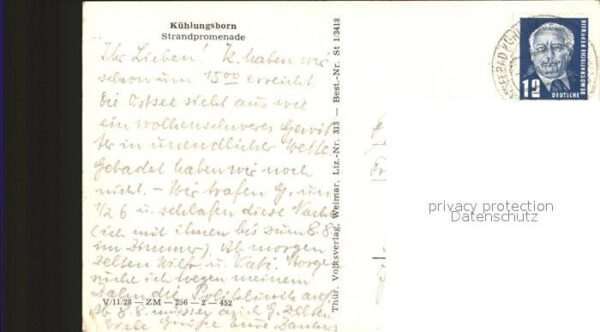 Kühlungsborn
Strandpromenade
Ihr Lieben! K. haben wir
schon um 15⁰⁰ erreicht.
Die Ostsee sieht aus wie
ein wolkenschweres Gewit-
ter in unendlicher Weite.
Gebadet haben wir noch
nicht. – Wir trafen G. um
1/2 6 u. schlafen diese Nacht
(ich mit ihnen bis zum 8.8.
im Zimmer). Ab morgen
zelten Wilf u. Kati. Morgen
suche ich wegen meinem
Zahn die Poliklinik auf.
Ab 8.8. müssen auch G. zelten.
Viele Grüße eure
V/11/28 — ZM — 256 — 2 — 452
Thür. Volksverlag, Weimar, Liz.-Nr. 313 — Best.-Nr. St 1/3418
12
DEUTSCHE
DEMOKRATISCHE REPUBLIK
privacy protection
Datenschutz